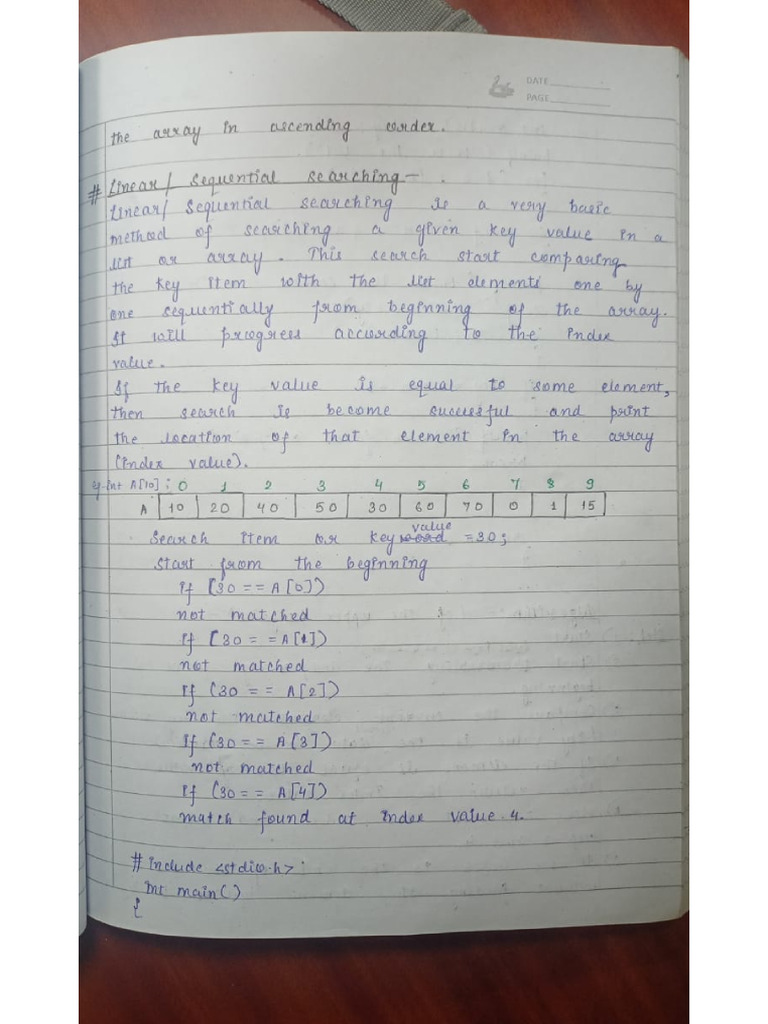 DATE
PAGE
the array in ascending order.
# Linear/ Sequential searching-
Linear/ Sequential searching is a very basic
method of searching a given key value in a
list or array. This search start comparing
the key item with the list elements one by
one sequentially from beginning of the array.
It will progress according to the index
value.
If the key value is equal to some element,
then search is become successful and print
the location of that element in the array
(index value).
eg-int A[10]: 0 1 2 3 4 5 6 7 8 9
A 10 20 40 50 30 60 70 0 1 15
Search item or key value =30;
start from the beginning
if (30 == A[0])
not matched
If (30 == A[1])
not matched
If (30 == A[2])
not matched
If (30 == A[3])
not matched
If (30 == A[4])
match found at index value 4.
# include <stdio.h>
int main()
{